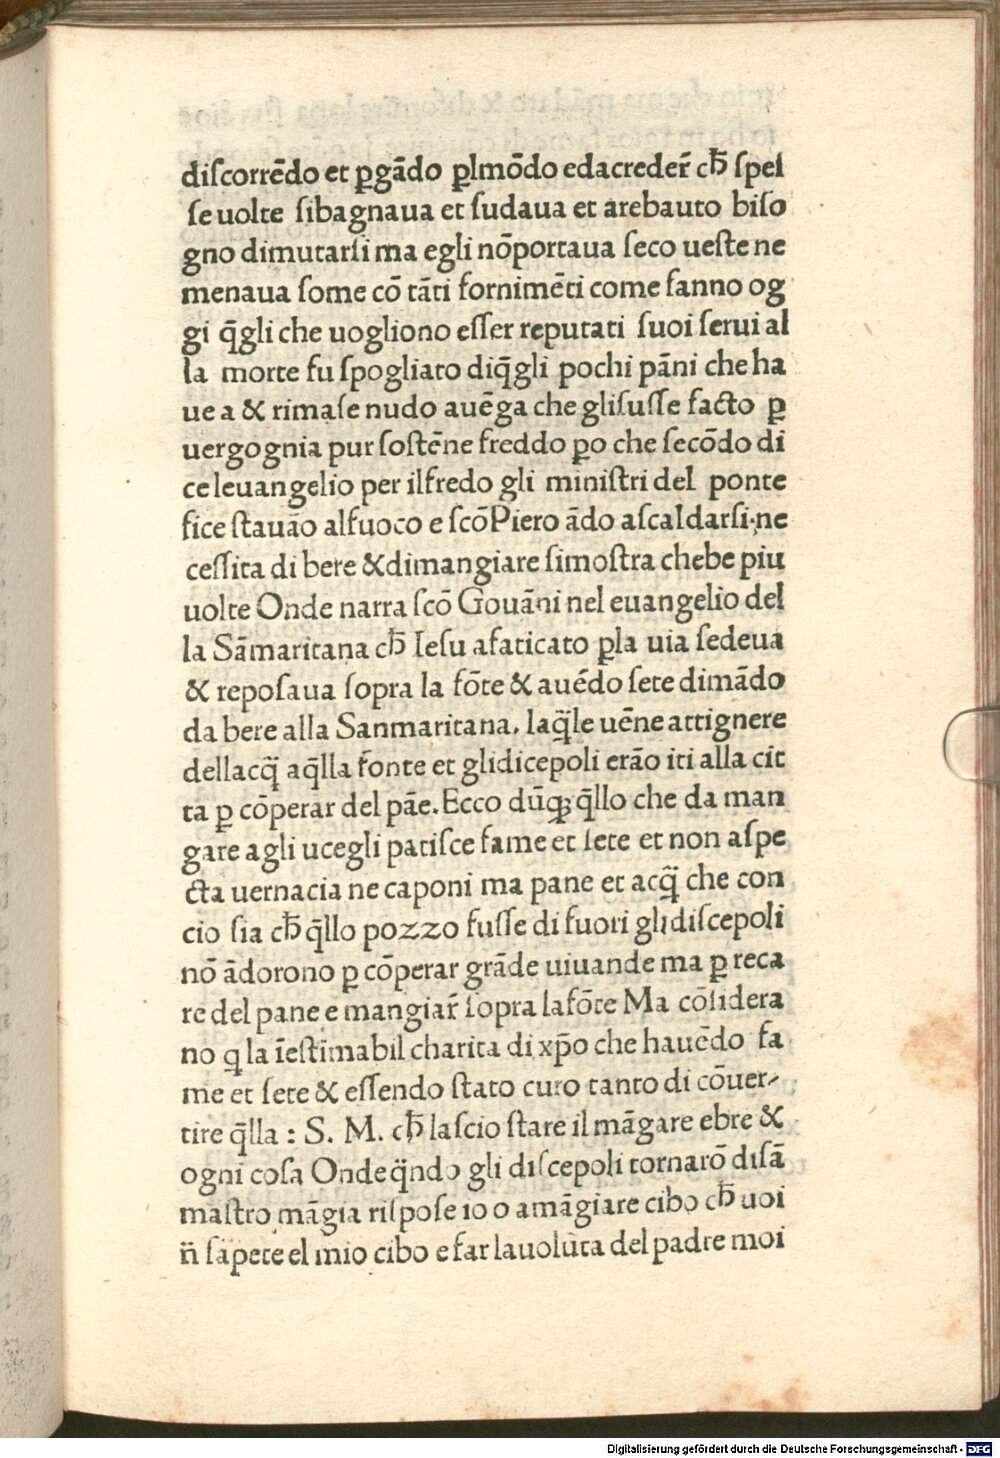 diſcorrēdo et ꝑgādo ꝑlmōdo edacreder̄ cħ ſpeſ
ſe uolte ſibagnaua et ſudaua et arebauto biſo
gno dimutarſi ma egli nōportaua ſeco ueſte ne
menaua ſome cō tāti fornimēti come fanno og
gi q̄gli che uogliono eſſer reputati ſuoi ſerui al
la morte fu ſpogliato diq̄gli pochi pāni che ha
ue a & rimaſe nudo auēga che gliſuſſe facto ꝑ
uergognia pur ſoſtēne freddo ꝑo che ſecōdo di
ce leuangelio per ilfredo gli miniſtri del ponte
fice ſtauāo alfuoco e ſcōPiero ādo aſcaldarſi.ne
ceſſita di bere &dimangiare ſimoſtra chebe piu
uolte Onde narra ſcō Gouāni nel euangelio del
la Sāmaritana cħ Ieſu afaticato ꝑla uia ſedeua
& repoſaua ſopra la fōte & auēdo ſete dimādo
da bere alla Sanmaritana. laq̄le uēne attignere
dellacq̄ aq̄lla fonte et glidicepoli erāo iti alla cit
ta ꝑ cōperar del pāe. Ecco dūqꝫ q̄llo che da man
gare agli ucegli patiſce fame et ſete et non aſpe
cta uernacia ne caponi ma pane et acq̄ che con
cio ſia cħ q̄llo pozzo fuſſe di fuori gli diſcepoli
nō ādorono ꝑ cōperar grāde uiuande ma ꝑ reca
re del pane e mangiar̄ ſopra lafōte Ma cōſidera
no q la īeſtimabil charita di xp̄o che hauēdo fa
me et ſete & eſſendo ſtato curo tanto di cōuer-
tire q̄lla : S. M. cħ laſcio ſtare il māgare ebre &
ogni coſa Onde q̄ndo gli diſcepoli tornarō diſā
maſtro māgia riſpoſe io o amāgiare cibo cħ uoi
n̄ ſapete el mio cibo e far lauolūta del padre moi
Digitalisierung gefördert durch die Deutsche Forschungsgemeinschaft - DFG